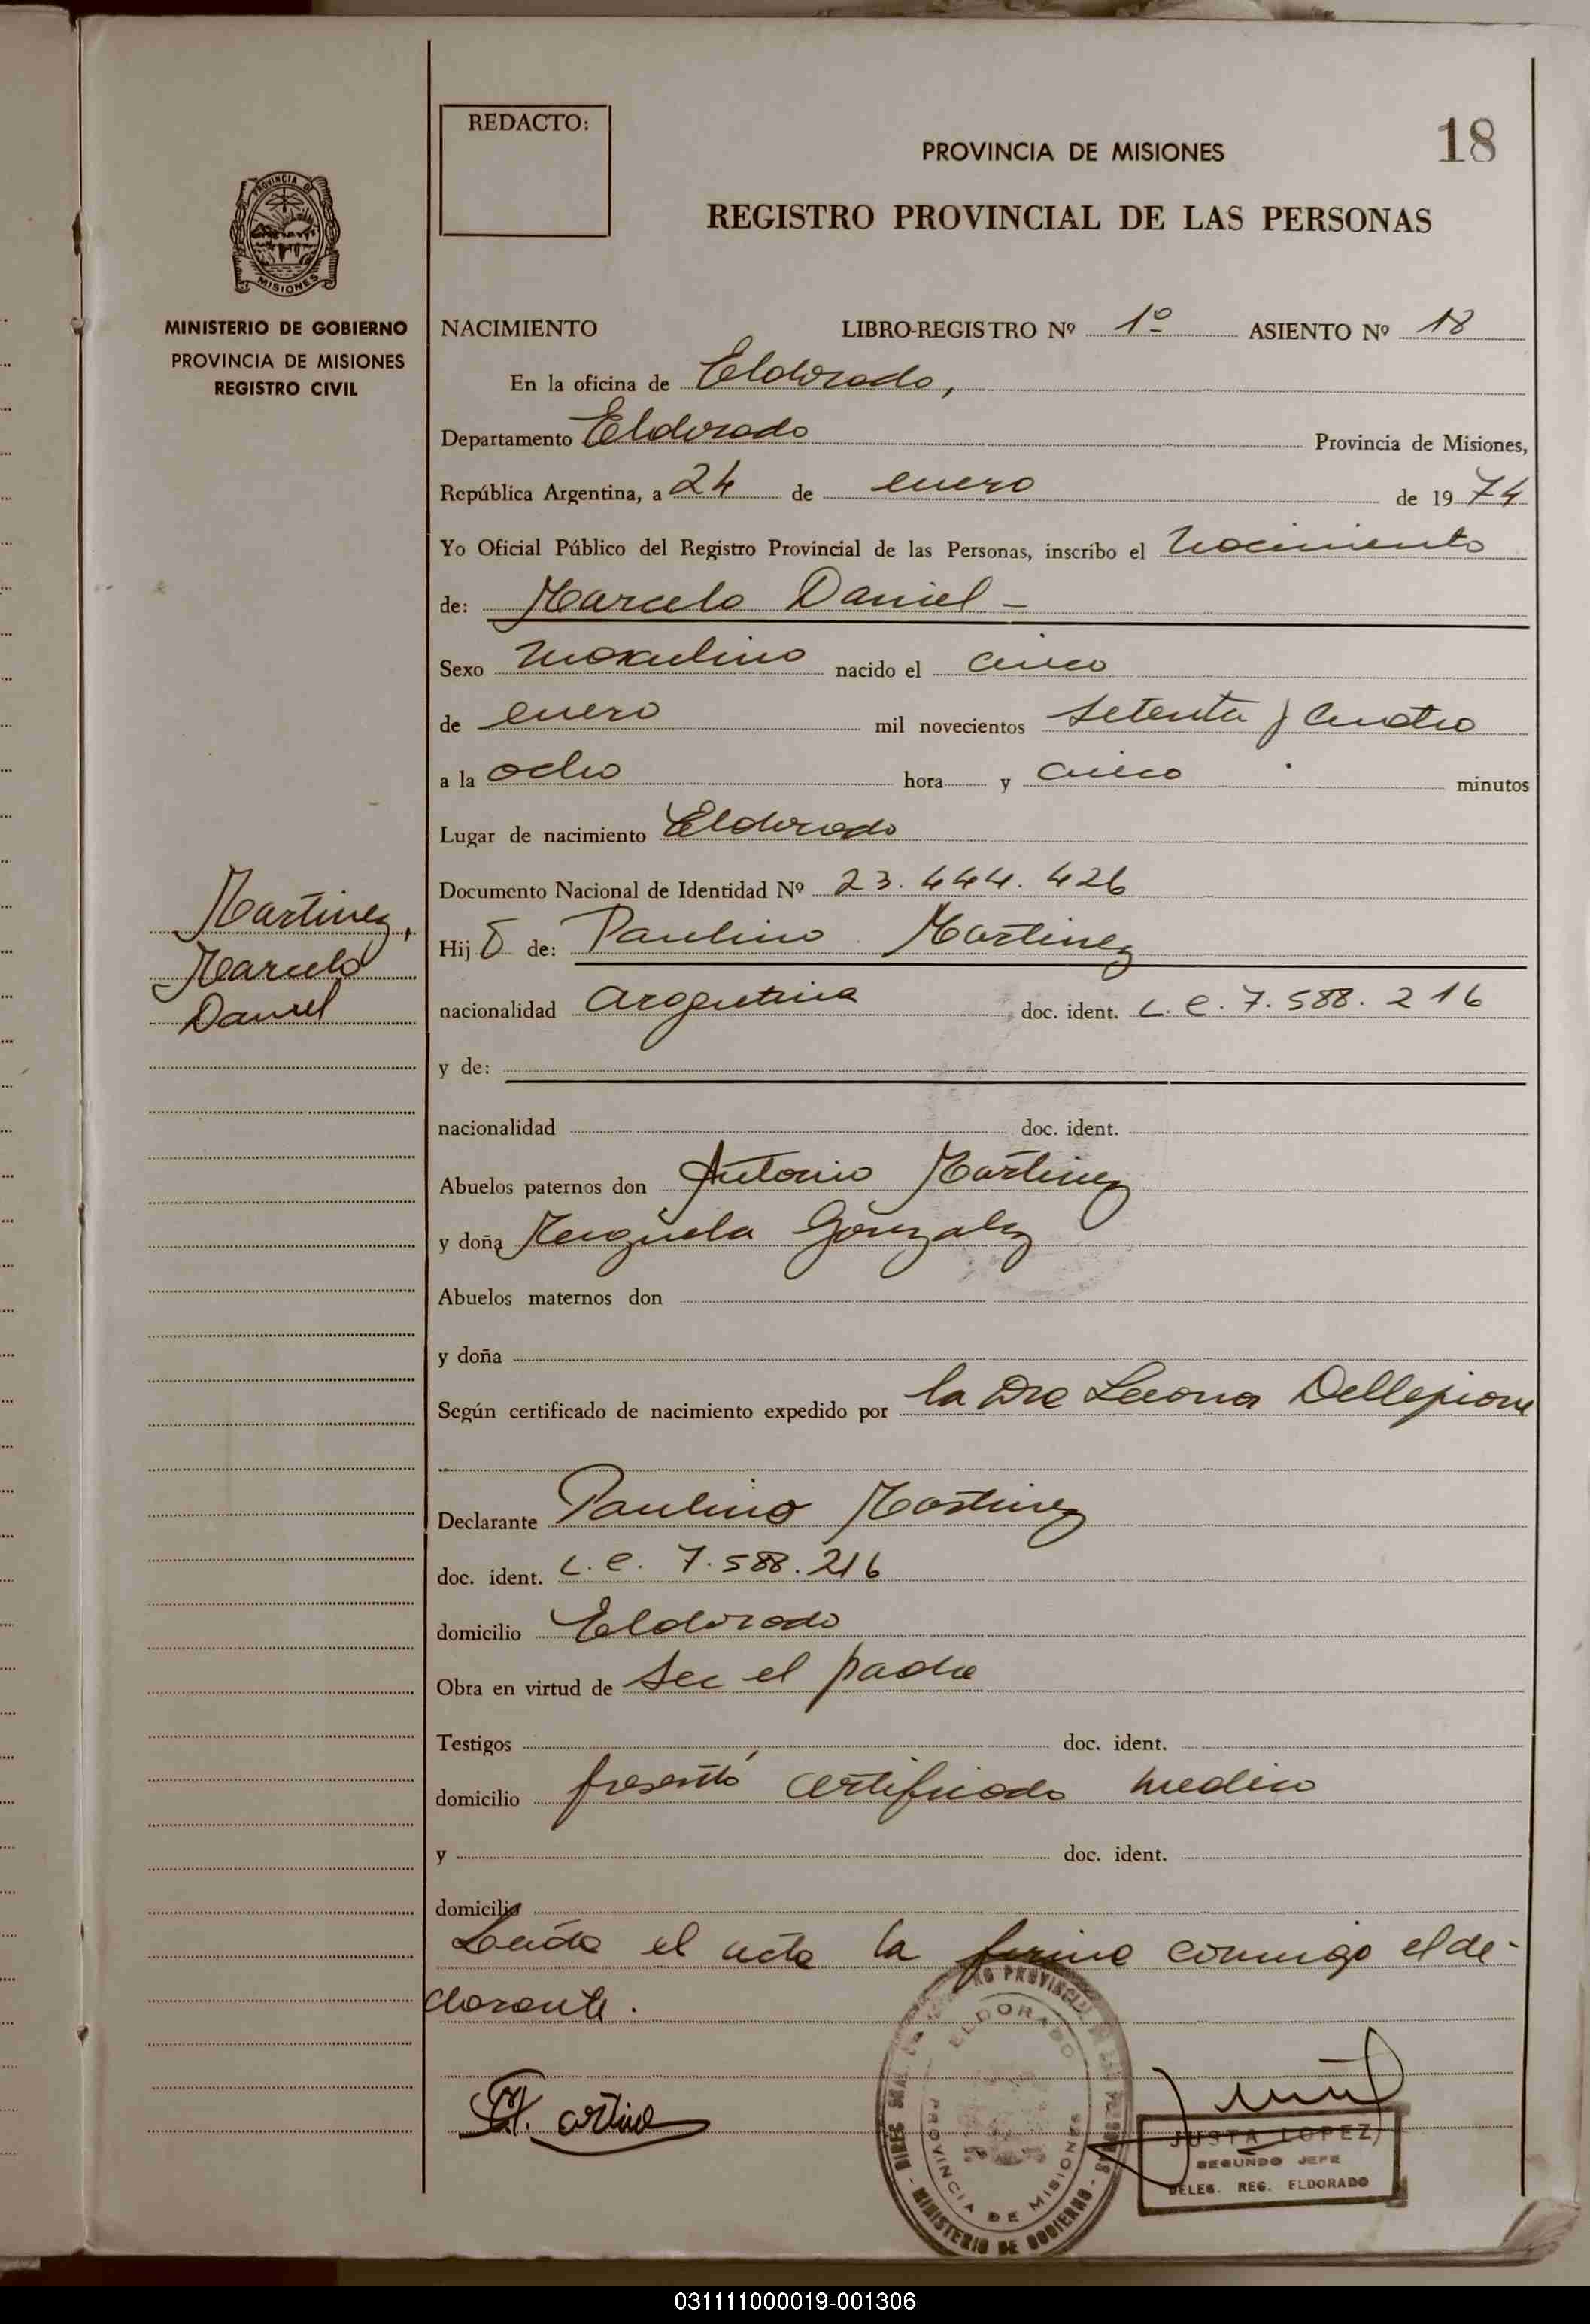 REDACTO:
18
PROVINCIA DE MISIONES
REGISTRO PROVINCIAL DE LAS PERSONAS
PROVINCIA DE
MISIONES
MINISTERIO DE GOBIERNO
PROVINCIA DE MISIONES
REGISTRO CIVIL
NACIMIENTO LIBRO-REGISTRO Nº 1º ASIENTO Nº 18
En la oficina de Eldorado,
Departamento Eldorado Provincia de Misiones,
República Argentina, a 24 de enero de 1974
Yo Oficial Público del Registro Provincial de las Personas, inscribo el Nacimiento
de: Marcelo Daniel -
Sexo masculino nacido el cinco
de enero mil novecientos setenta y cuatro
a la ocho hora y cinco minutos
Lugar de nacimiento Eldorado
Documento Nacional de Identidad Nº 23.444.426
Martinez,
Marcelo
Daniel
Hijo de: Paulino Martinez
nacionalidad argentina doc. ident. L.E. 7.588.216
y de:
nacionalidad doc. ident.
Abuelos paternos don Antonio Martinez
y doña Gonzalez
Abuelos maternos don
y doña
Según certificado de nacimiento expedido por la Dra Dellepiane
Declarante Paulino Martinez
doc. ident. L.E. 7.588.216
domicilio Eldorado
Obra en virtud de ser el padre
Testigos doc. ident.
domicilio presentó certificado medico
y doc. ident.
domicilio
Leída el acta la firma conmigo el de-
clarante.
ELDORADO
PROVINCIA DE MISIONES
MINISTERIO DE GOBIERNO
JUSTA LOPEZ
SEGUNDO JEFE
DELEG. REG. ELDORADO
031111000019-001306